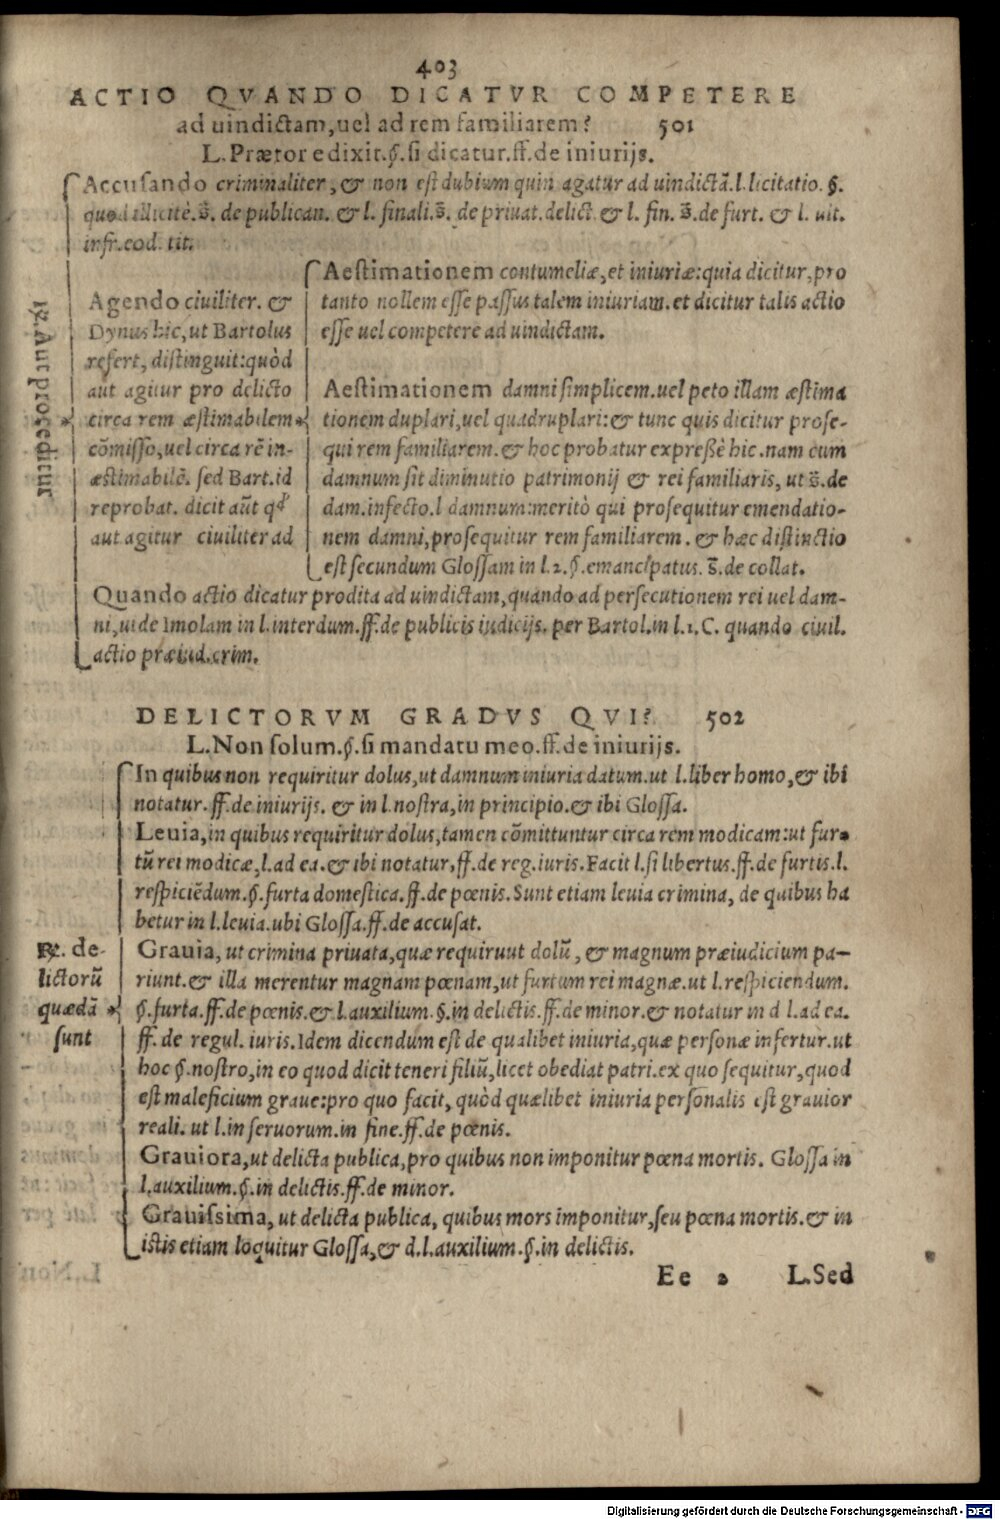 403
ACTIO QVANDO DICATVR COMPETERE
ad uindictam, uel ad rem familiarem? 501
L. Prætor edixit. §. si dicatur. ff. de iniurijs.
Accusando criminaliter, & non est dubium quin agatur ad uindictā. l. licitatio. §.
quod illicitè. s̄. de publican. & l. finali. s̄. de priuat. delict. & l. fin. s̄. de furt. & l. uit.
infr. eod. tit.
℞. Aut proceditur
Agendo ciuiliter. &
Dynus hic, ut Bartolus
refert, distinguit: quòd
aut agitur pro delicto
circa rem æstimabilem
cōmisso, uel circa rē in-
æstimabilē. sed Bart. id
reprobat. dicit aūt qd'
aut agitur ciuiliter ad
Aestimationem contumeliæ, et iniuriæ: quia dicitur, pro
tanto nollem esse passus talem iniuriam. et dicitur talis actio
esse uel competere ad uindictam.
Aestimationem damni simplicem. uel peto illam æstima
tionem duplari, uel quadruplari: & tunc quis dicitur prose-
qui rem familiarem. & hoc probatur expreßè hic. nam cum
damnum sit diminutio patrimonij & rei familiaris, ut s̄. de
dam. infecto. l damnum: meritò qui prosequitur emendatio-
nem damni, prosequitur rem familiarem. & hæc distinctio
est secundum Glossam in l. 2. §. emancipatus. s̄. de collat.
Quando actio dicatur prodita ad uindictam, quando ad persecutionem rei uel dam-
ni, uide Imolam in l. interdum. ff. de publicis iudicijs. per Bartol. in l. 1. C. quando ciuil.
actio præiud. crim.
DELICTORVM GRADVS QVI? 502
L. Non solum. §. si mandatu meo. ff. de iniurijs.
In quibus non requiritur dolus, ut damnum iniuria datum. ut l. liber homo, & ibi
notatur. ff. de iniurijs. & in l. nostra, in principio. & ibi Glossa.
Leuia, in quibus requiritur dolus, tamen cōmittuntur circa rem modicam: ut fur-
tū rei modicæ, l. ad ea. & ibi notatur, ff. de reg. iuris. Facit l. si libertus. ff. de furtis. l.
respiciēdum. §. furta domestica. ff. de pœnis. Sunt etiam leuia crimina, de quibus ha
betur in l. leuia. ubi Glossa. ff. de accusat.
℞. de-
lictorū
quædā
sunt
Grauia, ut crimina priuata, quæ requiruut dolū, & magnum præiudicium pa-
riunt. & illa merentur magnam pœnam, ut furtum rei magnæ. ut l. respiciendum.
§. furta. ff. de pœnis. & l. auxilium. §. in delictis. ff. de minor. & notatur in d l. ad ea.
ff. de regul. iuris. Idem dicendum est de qualibet iniuria, quæ personæ infertur. ut
hoc §. nostro, in eo quod dicit teneri filiū, licet obediat patri. ex quo sequitur, quod
est maleficium graue: pro quo facit, quòd quælibet iniuria personalis est grauior
reali. ut l. in seruorum. in fine. ff. de pœnis.
Grauiora, ut delicta publica, pro quibus non imponitur pœna mortis. Glossa in
l. auxilium. §. in delictis. ff. de minor.
Grauissima, ut delicta publica, quibus mors imponitur, seu pœna mortis. & in
istis etiam loquitur Glossa, & d. l. auxilium. §. in delictis.
Ee 2 L. Sed
Digitalisierung gefördert durch die Deutsche Forschungsgemeinschaft - DFG